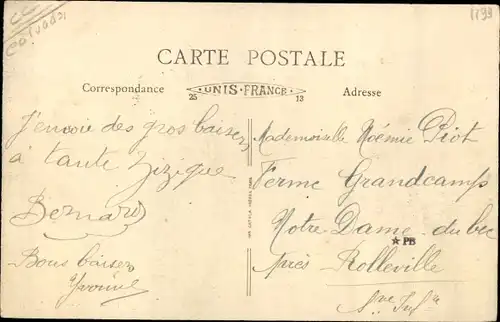 1193
CARTE POSTALE
Correspondance
25 UNIS-FRANCE 13
Adresse
J'envoie des gros baisers
à tante Zizique
Bernard
Bons baisers
Yvonne
Mademoiselle Noémie Piot
Ferme Grandcamp
Notre Dame du bec
★ PB
Près Rolleville
Sne Infre